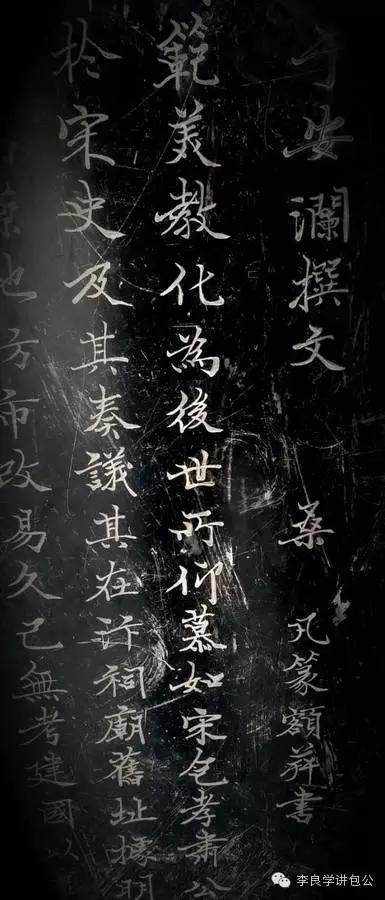 于安瀾撰文 桑凡篆額并書
範美教化為後世所仰慕如宋包孝肅公
於宋史及其奏議其在汴祠廟舊址據明
也方市改易久已無考建國以
李良学讲包公